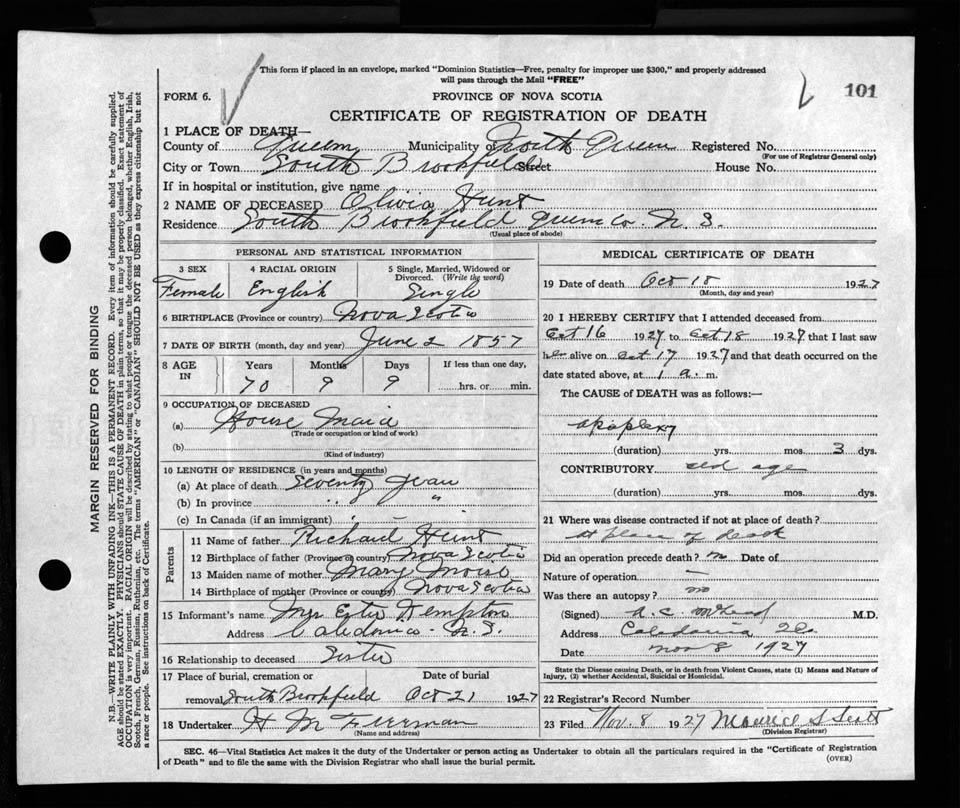 This form if placed in an envelope, marked "Dominion Statistics—Free, penalty for improper use $300," and properly addressed
will pass through the Mail "FREE"
101
FORM 6.
PROVINCE OF NOVA SCOTIA
CERTIFICATE OF REGISTRATION OF DEATH
1 PLACE OF DEATH—
County of Queens Municipality of North Queens Registered No.
(For use of Registrar General only)
City or Town South Brookfield Street House No.
If in hospital or institution, give name
2 NAME OF DECEASED Olivia Hunt
Residence South Brookfield Queens Co. N. S.
(Usual place of abode)
PERSONAL AND STATISTICAL INFORMATION
3 SEX 4 RACIAL ORIGIN 5 Single, Married, Widowed or
Divorced. (Write the word)
Female English Single
6 BIRTHPLACE (Province or country) Nova Scotia
7 DATE OF BIRTH (month, day and year) June 2 1857
8 AGE IN Years Months Days If less than one day,
70 9 9 hrs. or min.
9 OCCUPATION OF DECEASED
(a) House Maid
(Trade or occupation or kind of work)
(b)
(Kind of industry)
10 LENGTH OF RESIDENCE (in years and months)
(a) At place of death Seventy Years
(b) In province " "
(c) In Canada (if an immigrant)
Parents
11 Name of father Richard Hunt
12 Birthplace of father (Province or country) Nova Scotia
13 Maiden name of mother Mary
14 Birthplace of mother (Province or country) Nova Scotia
15 Informant's name Mrs Kempton
Address Caledonia N. S.
16 Relationship to deceased Sister
17 Place of burial, cremation or Date of burial
removal South Brookfield Oct 21 1927
18 Undertaker H M Freeman
(Name and address)
MEDICAL CERTIFICATE OF DEATH
19 Date of death Oct 18 1927
(Month, day and year)
20 I HEREBY CERTIFY that I attended deceased from
Oct 16 1927 to Oct 18 1927 that I last saw
her alive on Oct 17 1927 and that death occurred on the
date stated above, at 1 a. m.
The CAUSE of DEATH was as follows:—
apoplexy
(duration) yrs. mos. 3 dys.
CONTRIBUTORY old age
(duration) yrs. mos. dys.
21 Where was disease contracted if not at place of death?
at place of death
Did an operation precede death? no Date of
Nature of operation —
Was there an autopsy? no
(Signed) M.D.
Address Caledonia
Date Nov 8 1927
State the Disease causing Death, or in death from Violent Causes, state (1) Means and Nature of
Injury, (2) whether Accidental, Suicidal or Homicidal.
22 Registrar's Record Number
23 Filed Nov. 8 1927 Maurice S Scott
(Division Registrar)
SEC. 46—Vital Statistics Act makes it the duty of the Undertaker or person acting as Undertaker to obtain all the particulars required in the "Certificate of Registration
of Death" and to file the same with the Division Registrar who shall issue the burial permit.
(OVER)
MARGIN RESERVED FOR BINDING
N.B.—WRITE PLAINLY WITH UNFADING INK—THIS IS A PERMANENT RECORD. Every item of information should be carefully supplied.
AGE should be stated EXACTLY. PHYSICIANS should STATE CAUSE OF DEATH in plain terms, so that it may be properly classified. Exact statement of
OCCUPATION is very important. RACIAL ORIGIN will be described by stating to what people or tongue the deceased person belonged, whether English, Irish,
Scotch, French, German, Russian, Ruthenian, etc. The terms "AMERICAN" or "CANADIAN" SHOULD NOT BE USED as they express citizenship but not
a race or people. See instructions on back of Certificate.